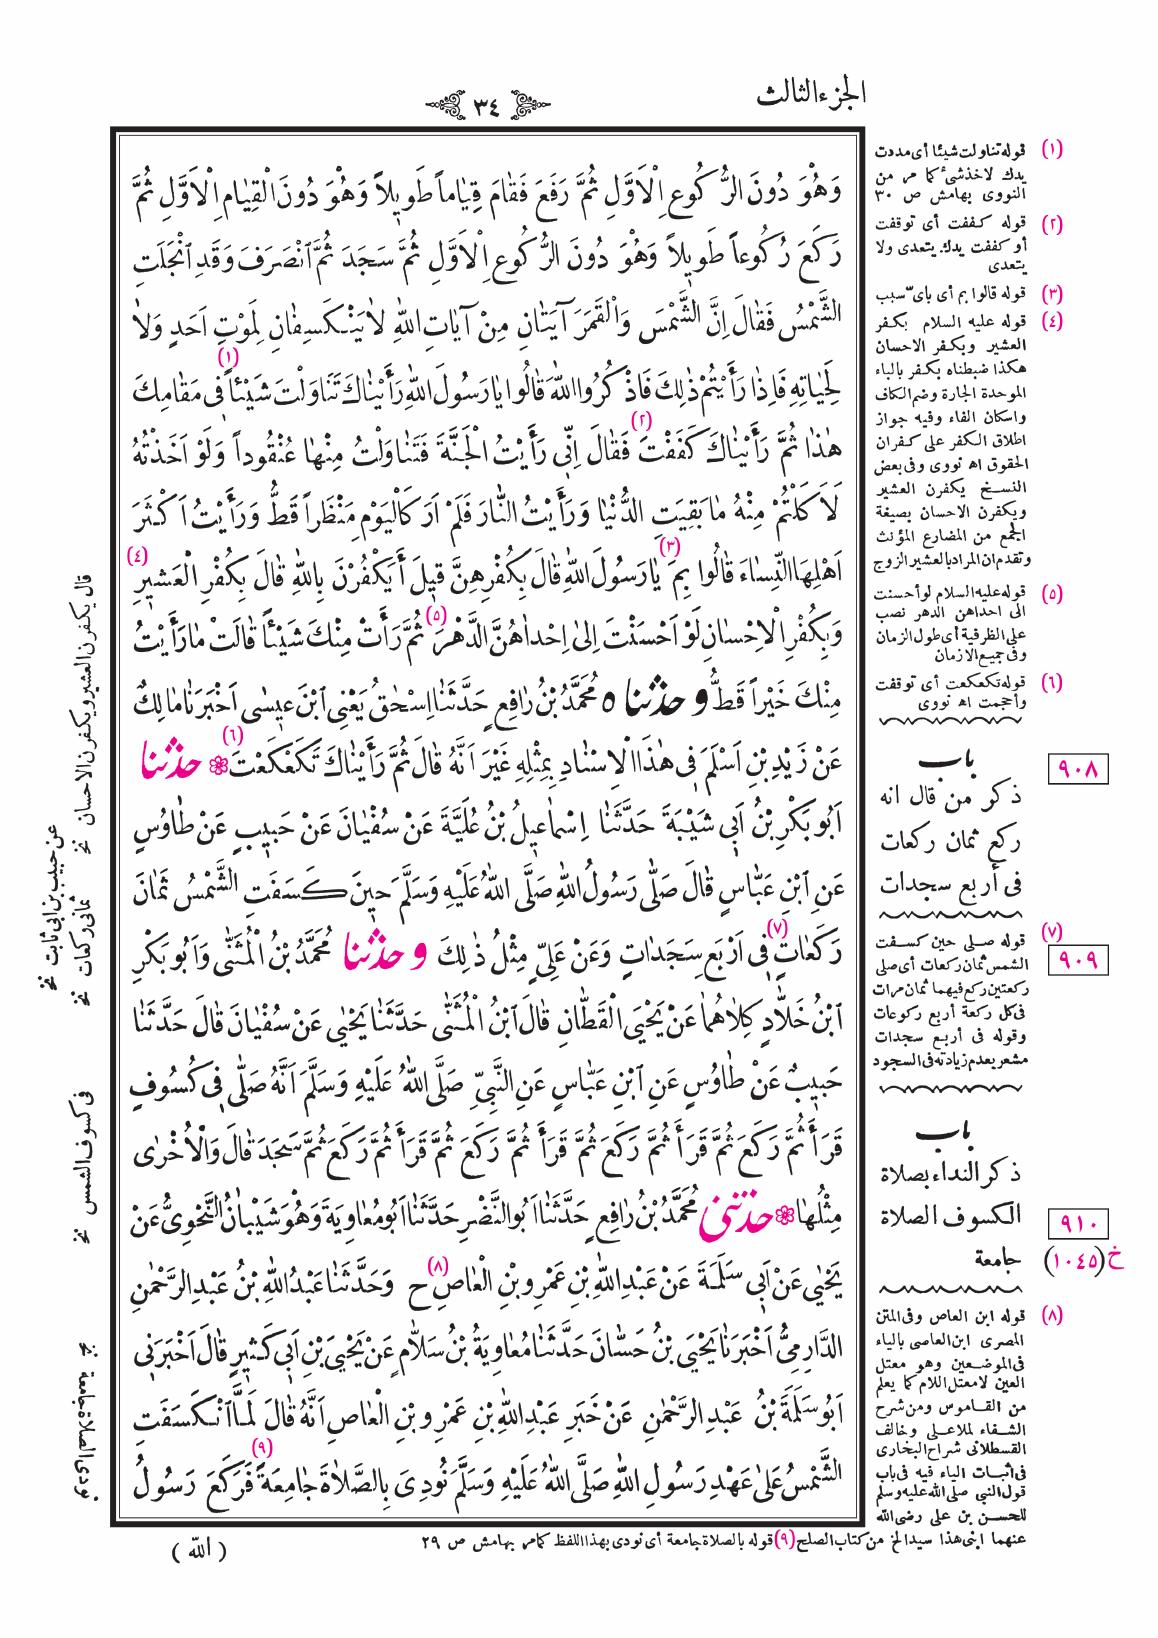 الجزء الثالث
٣٤
وَهُوَ دُونَ الرُّكُوعِ الْاَوَّلِ ثُمَّ رَفَعَ فَقَامَ قِيَاماً طَوِيلاً وَهُوَ دُونَ الْقِيَامِ الْاَوَّلِ ثُمَّ
رَكَعَ رُكُوعاً طَوِيلاً وَهُوَ دُونَ الرُّكُوعِ الْاَوَّلِ ثُمَّ سَجَدَ ثُمَّ ٱنْصَرَفَ وَقَدِ ٱنْجَلَتِ
الشَّمْسُ فَقَالَ اِنَّ الشَّمْسَ وَالْقَمَرَ آيَتَانِ مِنْ آيَاتِ اللهِ لاٰ يَنْكَسِفَانِ لِمَوْتِ اَحَدٍ وَلاٰ
لِحَيَاتِهِ فَاِذَا رَأَيْتُمْ ذٰلِكَ فَاذْكُرُوا اللهَ قَالُوا يَا رَسُولَ اللهِ رَأَيْنَاكَ تَنَاوَلْتَ شَيْئاً (١) فِى مَقَامِكَ
هٰذَا ثُمَّ رَأَيْنَاكَ كَفَفْتَ (٢) فَقَالَ اِنِّى رَأَيْتُ الْجَنَّةَ فَتَنَاوَلْتُ مِنْهَا عُنْقُوداً وَلَوْ اَخَذْتُهُ
لَاَكَلْتُمْ مِنْهُ مَا بَقِيَتِ الدُّنْيَا وَرَأَيْتُ النَّارَ فَلَمْ اَرَ كَالْيَوْمِ مَنْظَراً قَطُّ وَرَأَيْتُ اَكْثَرَ
اَهْلِهَا النِّسَاءَ قَالُوا بِمَ (٣) يَا رَسُولَ اللهِ قَالَ بِكُفْرِهِنَّ قِيلَ أَيَكْفُرْنَ بِاللهِ قَالَ بِكُفْرِ الْعَشِيرِ (٤)
وَبِكُفْرِ الْاِحْسَانِ لَوْ اَحْسَنْتَ اِلىٰ اِحْدَاهُنَّ الدَّهْرَ (٥) ثُمَّ رَأَتْ مِنْكَ شَيْئاً قَالَتْ مَا رَأَيْتُ
مِنْكَ خَيْراً قَطُّ وحدثنا ه مُحَمَّدُ بْنُ رَافِعٍ حَدَّثَنَا اِسْحٰقُ يَعْنِى ٱبْنَ عِيسٰى اَخْبَرَنَا مَالِكٌ
عَنْ زَيْدِ بْنِ اَسْلَمَ فِى هٰذَا الْاِسْنَادِ بِمِثْلِهِ غَيْرَ اَنَّهُ قَالَ ثُمَّ رَأَيْنَاكَ تَكَعْكَعْتَ (٦) حدثنا
اَبُو بَكْرِ بْنُ اَبِى شَيْبَةَ حَدَّثَنَا اِسْمَاعِيلُ بْنُ عُلَيَّةَ عَنْ سُفْيَانَ عَنْ حَبِيبٍ عَنْ طَاوُسٍ
عَنِ ٱبْنِ عَبَّاسٍ قَالَ صَلَّى رَسُولُ اللهِ صَلَّى اللهُ عَلَيْهِ وَسَلَّمَ حِينَ كَسَفَتِ الشَّمْسُ ثَمَانَ
رَكَعَاتٍ (٧) فِى اَرْبَعِ سَجَدَاتٍ وَعَنْ عَلِيٍّ مِثْلُ ذٰلِكَ وحدثنا مُحَمَّدُ بْنُ الْمُثَنّٰى وَاَبُو بَكْرِ
ٱبْنُ خَلَّادٍ كِلاٰهُمَا عَنْ يَحْيَى الْقَطَّانِ قَالَ ٱبْنُ الْمُثَنّٰى حَدَّثَنَا يَحْيٰى عَنْ سُفْيَانَ قَالَ حَدَّثَنَا
حَبِيبٌ عَنْ طَاوُسٍ عَنِ ٱبْنِ عَبَّاسٍ عَنِ النَّبِىِّ صَلَّى اللهُ عَلَيْهِ وَسَلَّمَ اَنَّهُ صَلَّى فِى كُسُوفٍ
قَرَأَ ثُمَّ رَكَعَ ثُمَّ قَرَأَ ثُمَّ رَكَعَ ثُمَّ قَرَأَ ثُمَّ رَكَعَ ثُمَّ قَرَأَ ثُمَّ رَكَعَ ثُمَّ سَجَدَ قَالَ وَالْاُخْرٰى
مِثْلُهَا حدثنى مُحَمَّدُ بْنُ رَافِعٍ حَدَّثَنَا اَبُو النَّضْرِ حَدَّثَنَا اَبُو مُعَاوِيَةَ وَهُوَ شَيْبَانُ النَّحْوِىُّ عَنْ
يَحْيٰى عَنْ اَبِى سَلَمَةَ عَنْ عَبْدِ اللهِ بْنِ عَمْرِو بْنِ الْعَاصِ (٨) ح وَحَدَّثَنَا عَبْدُ اللهِ بْنُ عَبْدِ الرَّحْمٰنِ
الدَّارِمِىُّ اَخْبَرَنَا يَحْيَى بْنُ حَسَّانَ حَدَّثَنَا مُعَاوِيَةُ بْنُ سَلاَّمٍ عَنْ يَحْيَى بْنِ اَبِى كَثِيرٍ قَالَ اَخْبَرَنِى
اَبُو سَلَمَةَ بْنُ عَبْدِ الرَّحْمٰنِ عَنْ خَبَرِ عَبْدِ اللهِ بْنِ عَمْرِو بْنِ الْعَاصِ اَنَّهُ قَالَ لَمَّا ٱنْكَسَفَتِ
الشَّمْسُ عَلىٰ عَهْدِ رَسُولِ اللهِ صَلَّى اللهُ عَلَيْهِ وَسَلَّمَ نُودِىَ بِالصَّلاٰةَ جَامِعَةً (٩) فَرَكَعَ رَسُولُ
( الله )
(١) قوله تناولت شيئا أى مددت
يدك لاخذ شىٔ كما مر من
النووى بهامش ص ٣٠
(٢) قوله كففت أى توقفت
أو كففت يدك. يتعدى ولا
يتعدى
(٣) قوله قالوا بم أى باىّ سبب
(٤) قوله عليه السلام بكفر
العشير وبكفر الاحسان
هكذا ضبطناه بكفر بالباء
الموحدة الجارة وضم الكاف
واسكان الفاء وفيه جواز
اطلاق الكفر على كفران
الحقوق اه نووى وفى بعض
النسخ يكفرن العشير
ويكفرن الاحسان بصيغة
الجمع من المضارع المؤنث
وتقدم ان المراد بالعشير الزوج
(٥) قوله عليه السلام لو أحسنت
الى احداهن الدهر نصب
على الظرفية أى طول الزمان
وفى جميع الازمان
(٦) قوله تكعكعت أى توقفت
وأحجمت اه نووى
باب
٩٠٨
ذكر من قال انه
ركع ثمان ركعات
فى أربع سجدات
(٧) قوله صلى حين كسفت
٩٠٩
الشمس ثمان ركعات أى صلى
ركعتين ركع فيهما ثمان مرات
فى كل ركعة أربع ركوعات
وقوله فى أربع سجدات
مشعر بعدم زيادته فى السجود
باب
ذكر النداء بصلاة
الكسوف الصلاة
٩١٠
جامعة
خ (١٠٤٥)
(٨) قوله ابن العاص وفى المتن
المصرى ابن العاصى بالياء
فى الموضعين وهو معتل
العين لا معتل اللام كما يعلم
من القاموس ومن شرح
الشفاء لملا على وخالف
القسطلانى شراح البخارى
فى اثبات الياء فيه فى باب
قول النبى صلى الله عليه وسلم
للحسن بن على رضى الله
عنهما ابنى هذا سيد الخ من كتاب الصلح (٩) قوله بالصلاة جامعة أى نودى بهذا اللفظ كما مر بهامش ص ٢٩
قال يكفرن العشير ويكفرن الاحسان نخ
عن حبيب بن ابى ثابت نخ
ثمانى ركعات نخ
فى كسوف الشمس نخ
نودى الصلاة جامعة نخ